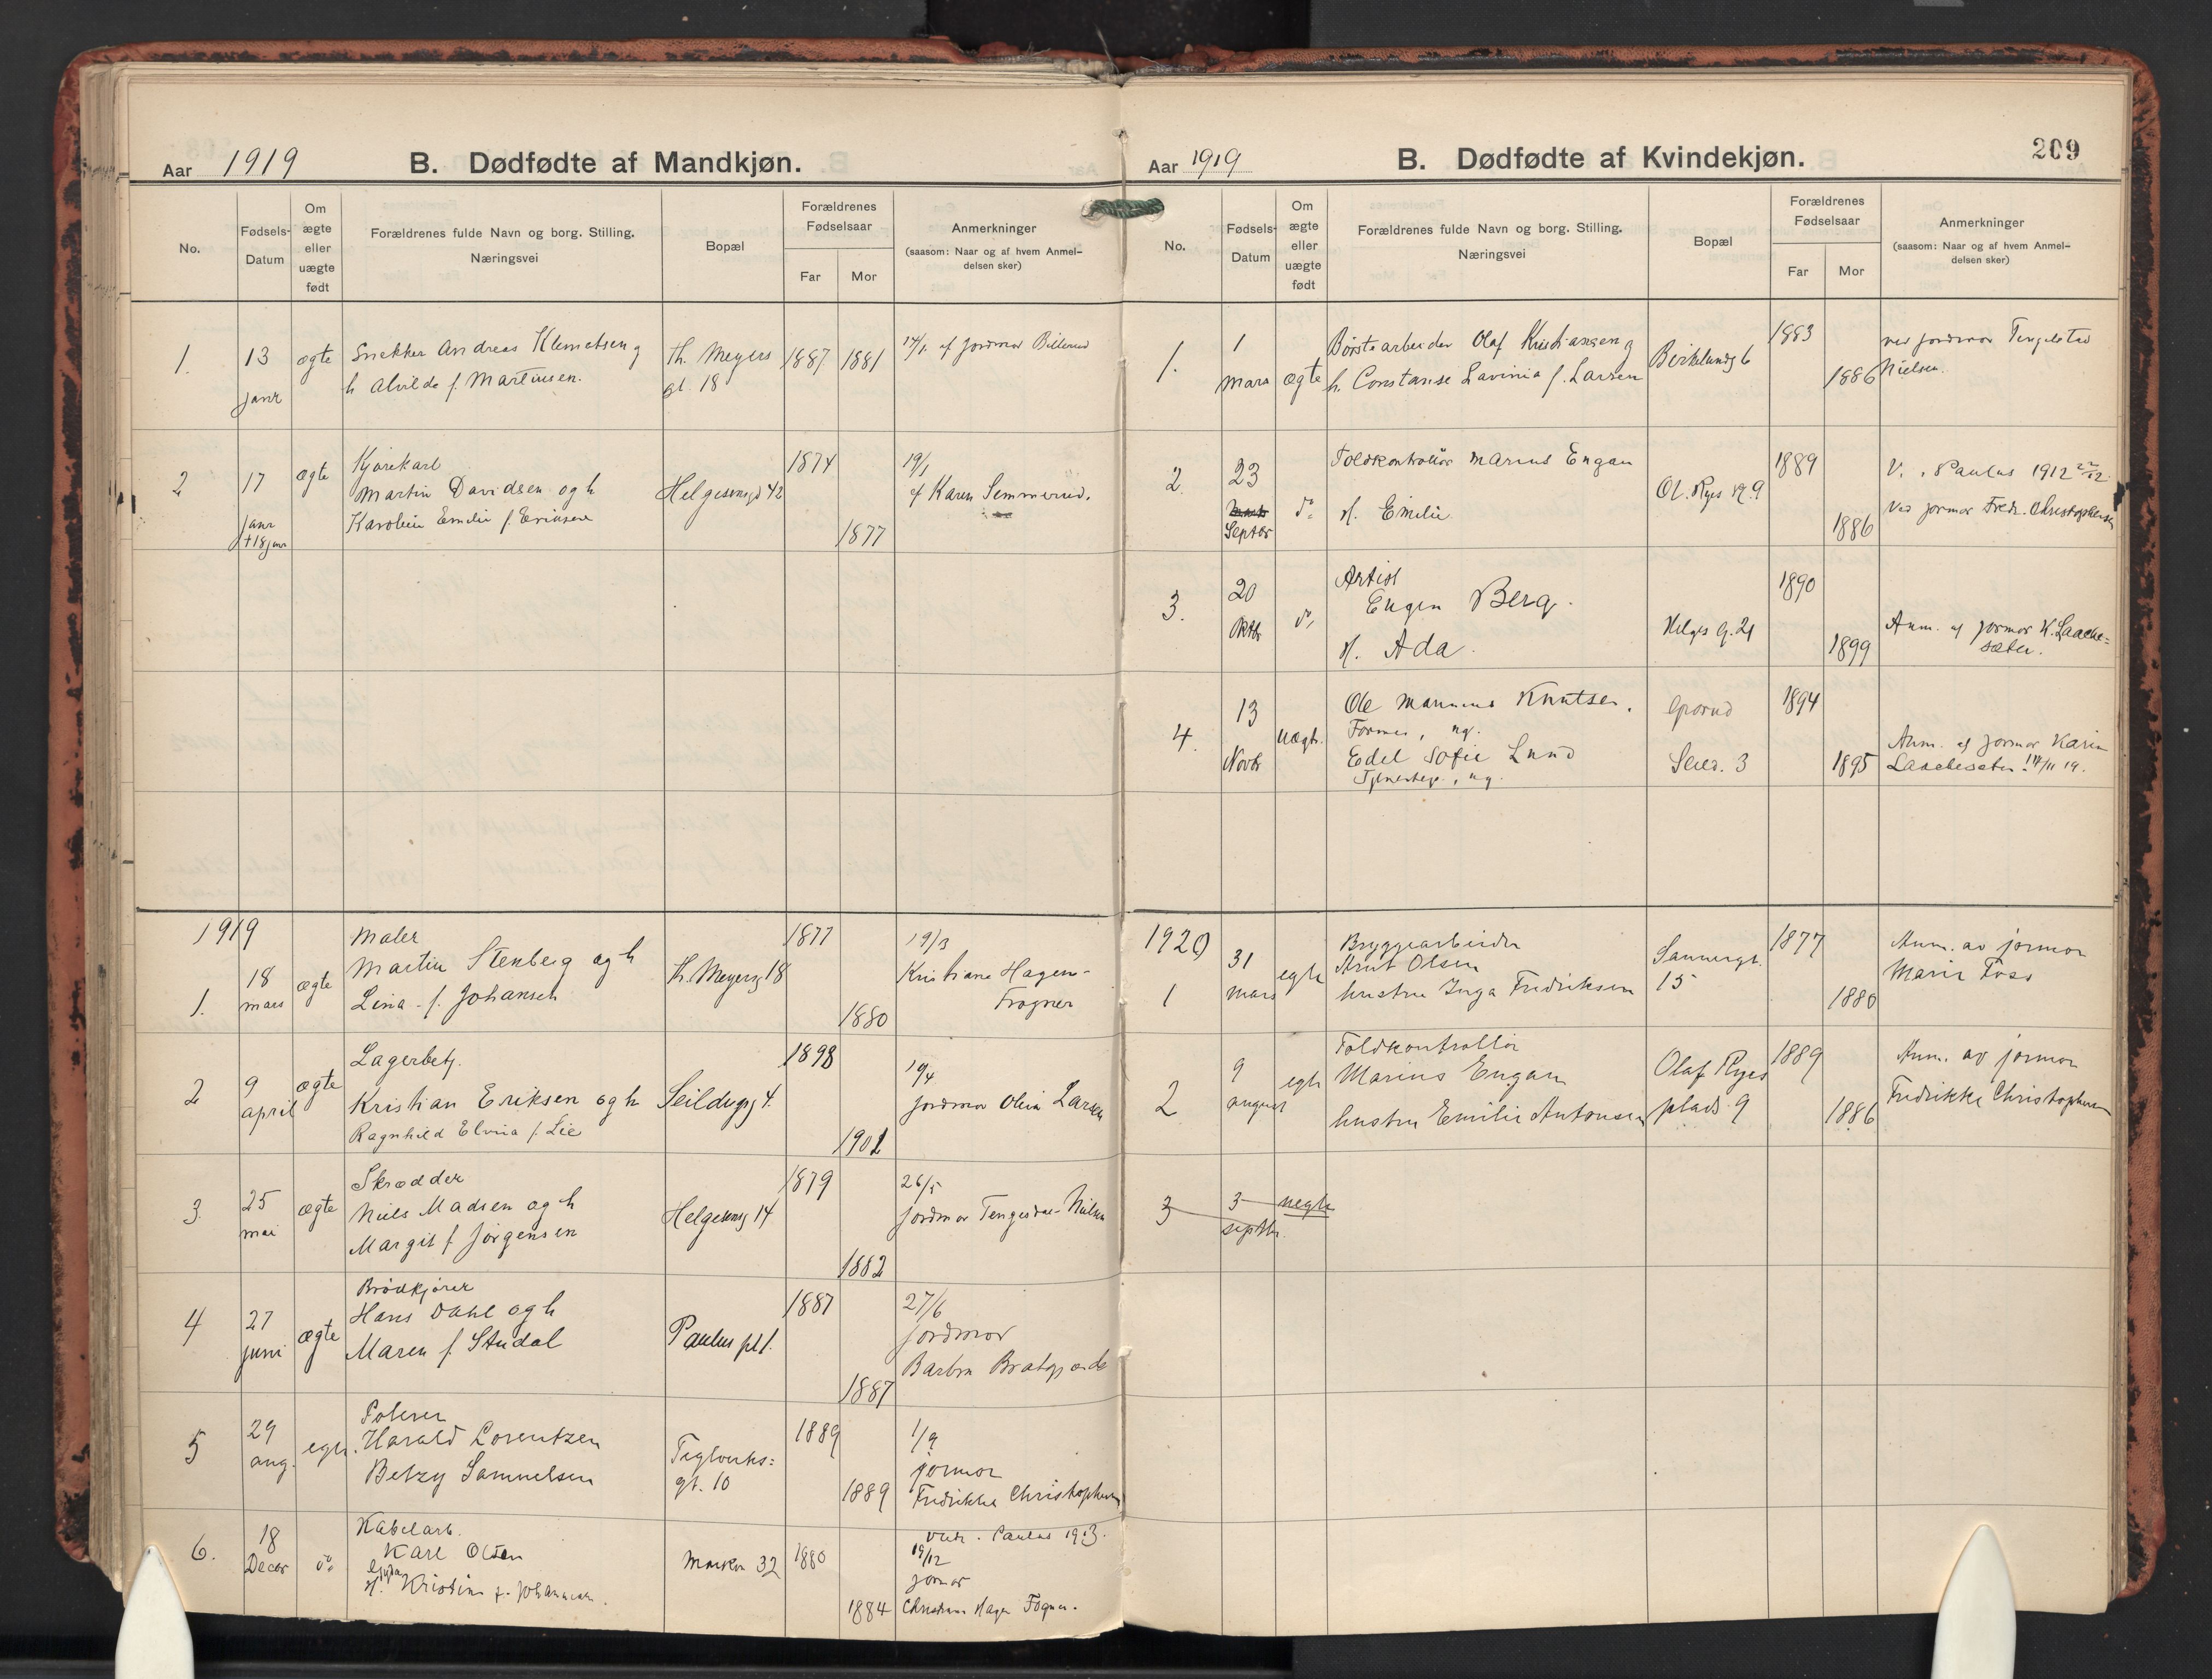 Aar 1919 B. Dødfødte af Mandkjøn.
No.
Fødsels-
Datum
Om
ægte
eller
uægte
født
Forældrenes fulde Navn og borg. Stilling.
Næringsvei
Bopæl
Forældrenes
Fødselsaar
Far Mor
Anmerkninger
(saasom: Naar og af hvem Anmel-
delsen sker)
1. 13 ægte Snekker Andreas Klemetsen og Th. Meyers 1887 1881 14/1 af jordmor Billerud
janr h Alvilde f. Martinsen. gt. 18
2 17 ægte Kjørekarl 1874 19/1
Martin Davidsen og h Helgesensgd 42 af Karen Semmerud.
janr Karoline Emilie f. Eriksen 1877
+18 janr
1919 Maler 1877 19/3
18 ægte Martin Stenberg og h Th. Meyersg 18 Kristiane Hagen-
1. mars Lina f. Johansen 1880 Frogner
Lagerbetj. 1898 19/4
2 9 ægte Kristian Eriksen og h Seildugsg 4. jordmor Olivia Larsen
april Ragnhild Elvina f. Lie 1901
Skrædder 1879 26/5
3. 25 ægte Niels Madsen og h Helgesensg 14 jordmor Nielsen
mai Margit f Jørgensen 1882
Brødkjører 1887 27/6
4 27 ægte Hans Dahl og h Paulus pl 1. jordmor
juni Maren f. Studal 1887 Barbra
Polerer 1889 1/9
5 29 egte. Harald Lorentzen Teglverks= jormor
aug. Betzy Samuelsen gt. 10 1889 Fredrikke Christophersen
6. 18 Kabelarb. Paulus 1913.
Decbr do Karl Olsen Markv 32 1880 19/12
H. Kristine f. Johannesen. jormor
1884 Christiane Hagen Fogner.
Aar 1919 B. Dødfødte af Kvindekjøn. 209
No.
Fødsels-
Datum
Om
ægte
eller
uægte
født
Forældrenes fulde Navn og borg. Stilling.
Næringsvei
Bopæl
Forældrenes
Fødselsaar
Far Mor
Anmerkninger
(saasom: Naar og af hvem Anmel-
delsen sker)
1. 1 Børstearbeider Olaf Kristiansen og Birkelundg 6 1883 ved jordmor Tengelstad
mars ægte h. Constanse Lavinia f. Larsen 1886 Nielsen.
2. 23 Toldkontrollør Marius Engan 1889 V. i Paulus 1912 22/12
Marts do H. Emilie. Ol. Ryes pl. 9 Ved jormor Fredr. Christophersen
Septbr 1886
3. 20 Artist 1890
Eugen Berg. Helges G. 21
Oktbr do H. Ada. 1899 Anm. af jormor K. Laache=
sæter.
4. 13 Ole Knutsen. Grorud 1894
uægte. Former, ug.
Novbr Edel Sofie Lund Seild. 3 1895 Anm. af jormor Karin
Tjenestepi, ug. Laachesæter 14/11 19.
1920 Bryggearbeider 1877 Anm. av jormor
31 egte Knut Olsen Sannergt. Marie Foss
1 mars hustru Inga Fredriksen 15 1880
Toldkontrollør 1889 Anm. av jormor
2 9 egte Marius Engan Olaf Ryes Fredrikke Christophersen
august hustru Emilie Antonsen plads 9 1886
3 3 uegte
septbr.